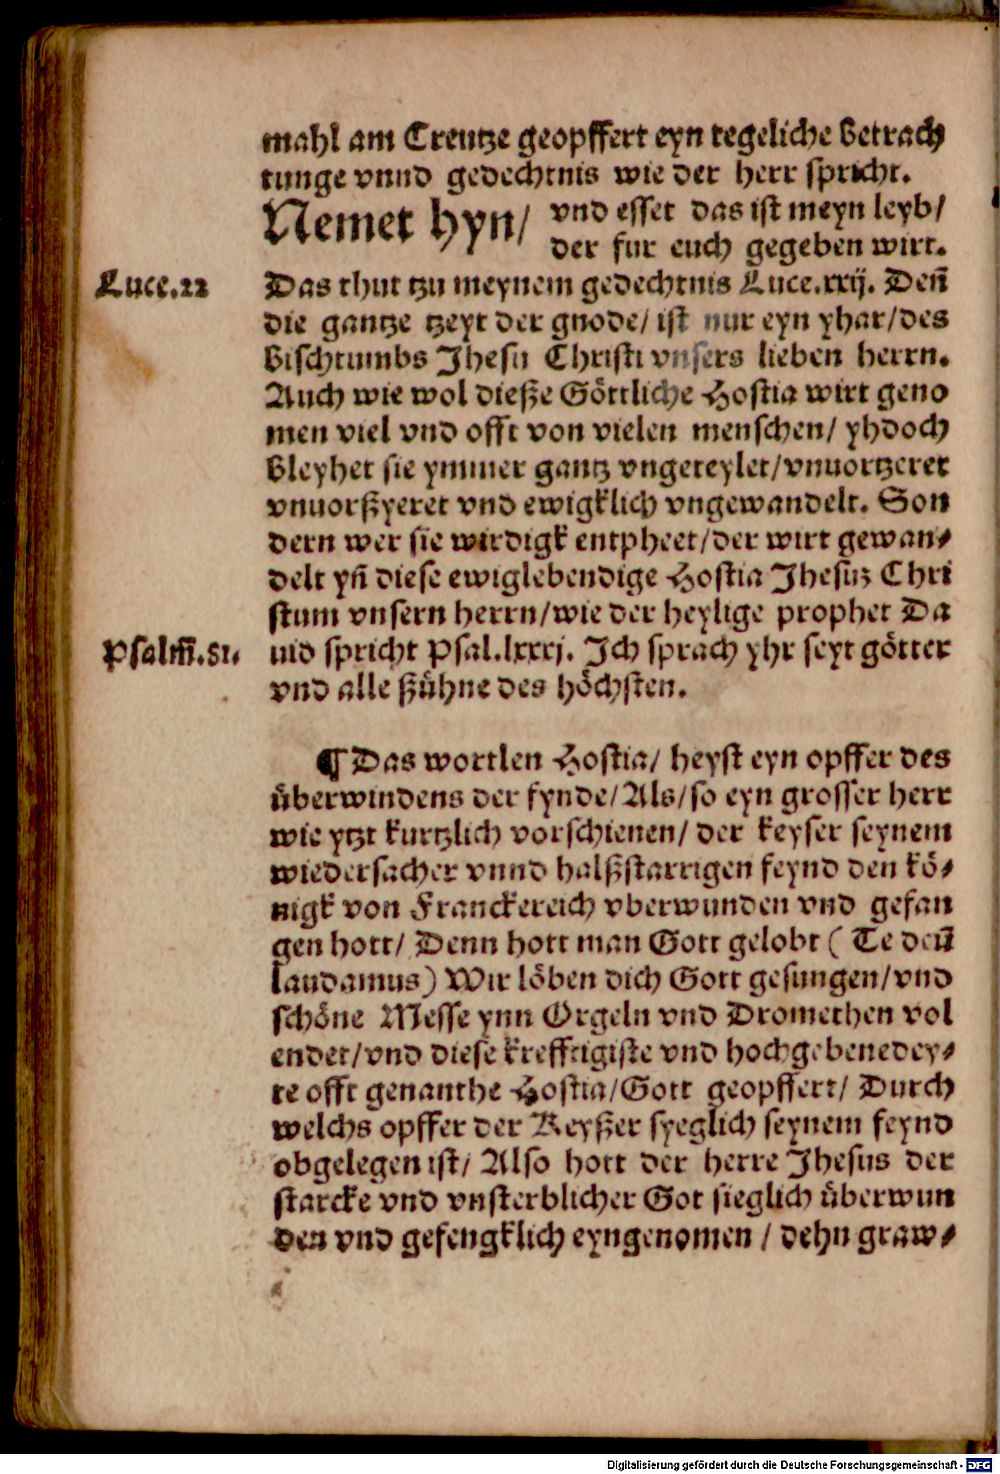 mahl am Creutze geopffert eyn tegeliche betrach
tunge vnnd gedechtnis wie der herr spricht.
Nemet hyn/ vnd esset das ist meyn leyb/
der fur euch gegeben wirt.
Luce.22 Das thut tzu meynem gedechtnis Luce.xxij. Den̄
die gantze tzeyt der gnode/ ist nur eyn yhar/des
bischtumbs Jhesu Christi vnsers lieben herrn.
Auch wie wol dieße Göttliche Hostia wirt geno
men viel vnd offt von vielen menschen/ yhdoch
bleyhet sie ymmer gantz vngeteylet/vnuortzeret
vnuorßyeret vnd ewigklich vngewandelt. Son
dern wer sie wirdigk entpheet/der wirt gewan⸗
delt yn̄ diese ewiglebendige Hostia Jhesuz Chri
stum vnsern herrn/wie der heylige prophet Da
Psalm̄.81. uid spricht Psal.lxxxj. Ich sprach yhr seyt götter
vnd alle ßühne des höchsten.
¶ Das wortlen Hostia/ heyst eyn opffer des
überwindens der fynde/Als/so eyn grosser herr
wie ytzt kurtzlich vorschienen/ der keyser seynem
wiedersacher vnnd halßstarrigen feynd den kö⸗
nigk von Franckereich vberwunden vnd gefan
gen hott/ Denn hott man Gott gelobt ( Te deū
laudamus) Wir löben dich Gott gesungen/vnd
schöne Messe ynn Orgeln vnd Dromethen vol
endet/vnd diese krefftigiste vnd hochgebenedey⸗
te offt genanthe Hostia/Gott geopffert/ Durch
welchs opffer der Keyßer syeglich seynem feynd
obgelegen ist/ Also hott der herre Jhesus der
starcke vnd vnsterblicher Got sieglich überwun
den vnd gefengklich eyngenomen / dehn graw⸗
Digitalisierung gefördert durch die Deutsche Forschungsgemeinschaft - DFG